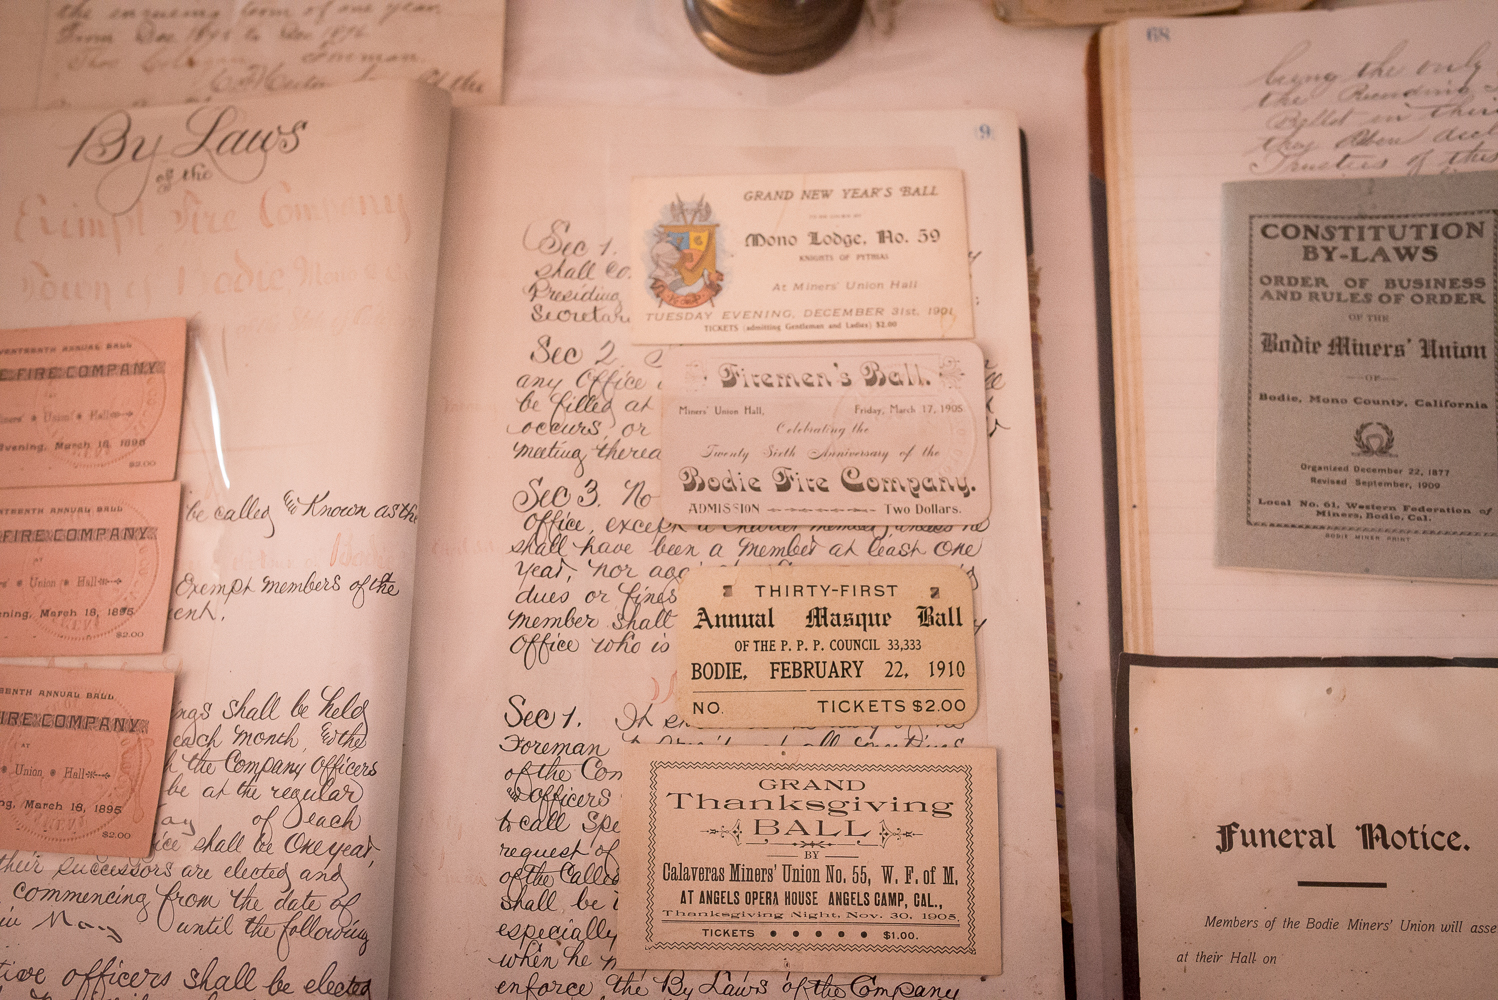 the enqueing term of one year
From Dec 1895 to Dec 1896
Foreman
By Laws
of the
Exempt Fire Company
Town of Bodie, Mono
ANNUAL BALL
FIRE COMPANY
Union Hall
Evening, March 18, 1895
$2.00
ANNUAL BALL
FIRE COMPANY
AT
Union Hall
March 18, 1895
$2.00
ANNUAL BALL
FIRE COMPANY
AT
Union Hall
March 18, 1895
$2.00
be called & Known as the
Exempt members of the
shall be held
each month, & the
the Company Officers
be at the regular
of each
shall be One year,
their successors are elected and
commencing from the date of
in May until the following
officers shall be elected
9
Sec 1.
shall co
Presiding
Secretar
Sec 2.
any Office
be filled at
occurs, or
meeting therea
Sec 3. No
Office, except a Charter member, unless he
shall have been a member at least one
year, nor
dues or fines
member shall
Office who is
Sec 1.
Foreman
of the Com
& officers
to call Spe
request of
of the Called
shall be
especially
when he
enforce the By Laws of the Company
GRAND NEW YEAR'S BALL
TO BE GIVEN BY
Mono Lodge, No. 59
KNIGHTS OF PYTHIAS
At Miners' Union Hall
TUESDAY EVENING, DECEMBER 31st, 1901
TICKETS (admitting Gentleman and Ladies) $2.00
Firemen's Ball.
Miners' Union Hall, Friday, March 17, 1905
Celebrating the
Twenty Sixth Anniversary of the
Bodie Fire Company.
ADMISSION Two Dollars.
THIRTY-FIRST
Annual Masque Ball
OF THE P. P. P. COUNCIL 33,333
BODIE, FEBRUARY 22, 1910
NO. TICKETS $2.00
GRAND
Thanksgiving
BALL
BY
Calaveras Miners' Union No. 55, W. F. of M.
AT ANGELS OPERA HOUSE ANGELS CAMP, CAL.,
Thanksgiving Night, Nov. 30, 1905.
TICKETS $1.00.
68
being the only
the
Ballot in their
they
Trustees of this
CONSTITUTION
BY-LAWS
ORDER OF BUSINESS
AND RULES OF ORDER
OF THE
Bodie Miners' Union
OF
Bodie, Mono County, California
Organized December 22, 1877
Revised September, 1909
Local No. 61, Western Federation of
Miners, Bodie, Cal.
BODIE MINER PRINT
Funeral Notice.
Members of the Bodie Miners' Union will asse
at their Hall on